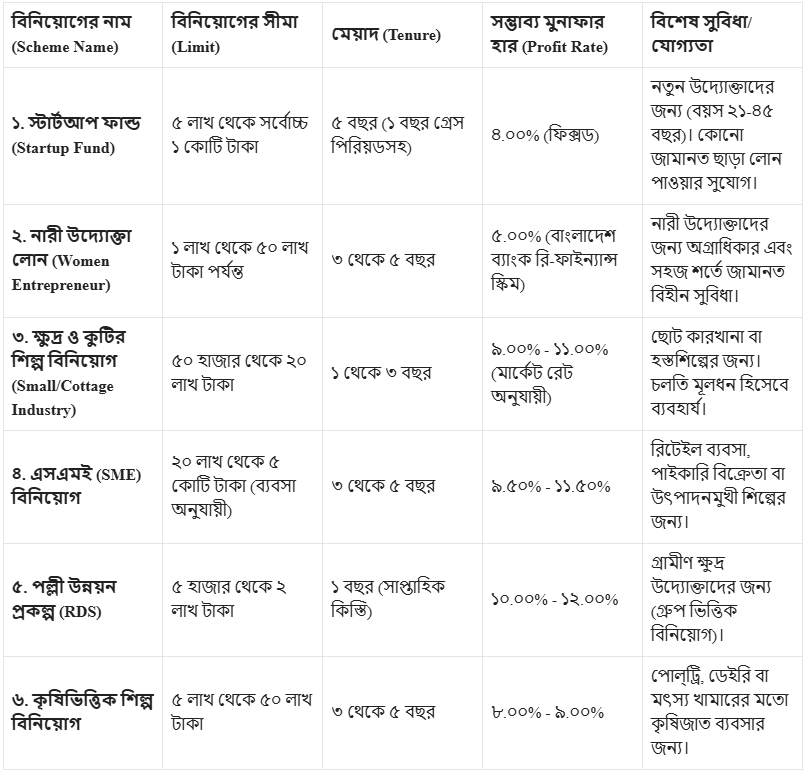 বিনিয়োগের নাম
(Scheme Name)
বিনিয়োগের সীমা
(Limit)
মেয়াদ (Tenure)
সম্ভাব্য মুনাফার
হার (Profit Rate)
বিশেষ সুবিধা/
যোগ্যতা
১. স্টার্টআপ ফান্ড
(Startup Fund)
৫ লাখ থেকে সর্বোচ্চ
১ কোটি টাকা
৫ বছর (১ বছর গ্রেস
পিরিয়ডসহ)
৪.০০% (ফিক্সড)
নতুন উদ্যোক্তাদের
জন্য (বয়স ২১-৪৫
বছর)। কোনো
জামানত ছাড়া লোন
পাওয়ার সুযোগ।
২. নারী উদ্যোক্তা
লোন (Women
Entrepreneur)
১ লাখ থেকে ৫০ লাখ
টাকা পর্যন্ত
৩ থেকে ৫ বছর
৫.০০% (বাংলাদেশ
ব্যাংক রি-ফাইন্যান্স
স্কিম)
নারী উদ্যোক্তাদের
জন্য অগ্রাধিকার এবং
সহজ শর্তে জামানত
বিহীন সুবিধা।
৩. ক্ষুদ্র ও কুটির
শিল্প বিনিয়োগ
(Small/Cottage
Industry)
৫০ হাজার থেকে ২০
লাখ টাকা
১ থেকে ৩ বছর
৯.০০% - ১১.০০%
(মার্কেট রেট
অনুযায়ী)
ছোট কারখানা বা
হস্তশিল্পের জন্য।
চলতি মূলধন হিসেবে
ব্যবহার্য।
৪. এসএমই (SME)
বিনিয়োগ
২০ লাখ থেকে ৫
কোটি টাকা (ব্যবসা
অনুযায়ী)
৩ থেকে ৫ বছর
৯.৫০% - ১১.৫০%
রিটেইল ব্যবসা,
পাইকারি বিক্রেতা বা
উৎপাদনমুখী শিল্পের
জন্য।
৫. পল্লী উন্নয়ন
প্রকল্প (RDS)
৫ হাজার থেকে ২
লাখ টাকা
১ বছর (সাপ্তাহিক
কিস্তি)
১০.০০% - ১২.০০%
গ্রামীণ ক্ষুদ্র
উদ্যোক্তাদের জন্য
(গ্রুপ ভিত্তিক
বিনিয়োগ)।
৬. কৃষিভিত্তিক শিল্প
বিনিয়োগ
৫ লাখ থেকে ৫০ লাখ
টাকা
৩ থেকে ৫ বছর
৮.০০% - ৯.০০%
পোল্ট্রি, ডেইরি বা
মৎস্য খামারের মতো
কৃষিজাত ব্যবসার
জন্য।